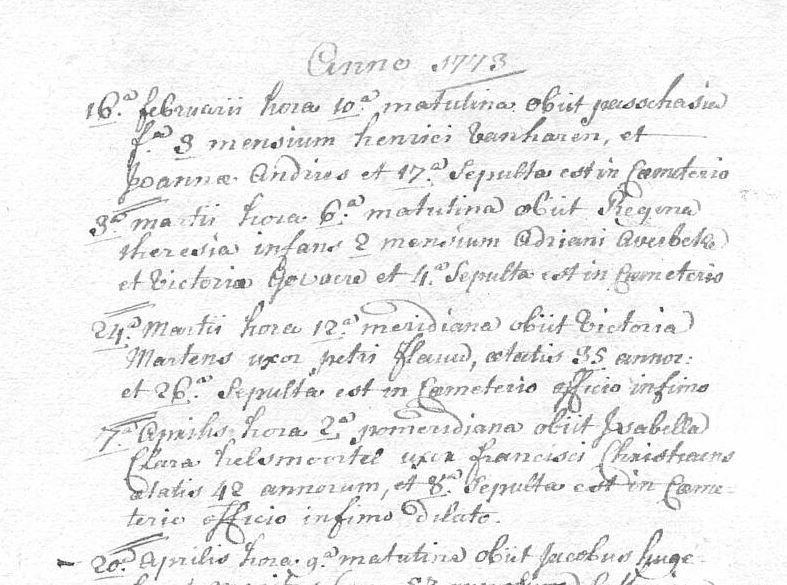 Anno 1773
16.a februarii hora 10.a matutina obiit passchasia
f.a 3 mensium henrici Vanharen, et
Joannæ Andries et 17.a Sepulta est in Cæmeterio
3.a martii hora 6.a matutina obiit Regina
theresia infans 2 mensium Adriani
et Victoria et 4.a Sepulta est in Cæmeterio
24.a Martii hora 12.a meridiana obiit Victoria
Martens uxor petri ætatis 35 annor:
et 26.a Sepulta est in Cæmeterio officio infimo
7.a Aprilis hora 2.a pomeridiana obiit Isabella
Clara helsmoortel uxor francisci Christiaens
ætatis 42 annorum, et 8.a Sepulta est in Cæme-
terio officio infimo dilato.
20.a Aprilis hora 9.a matutina obiit Jacobus huge-